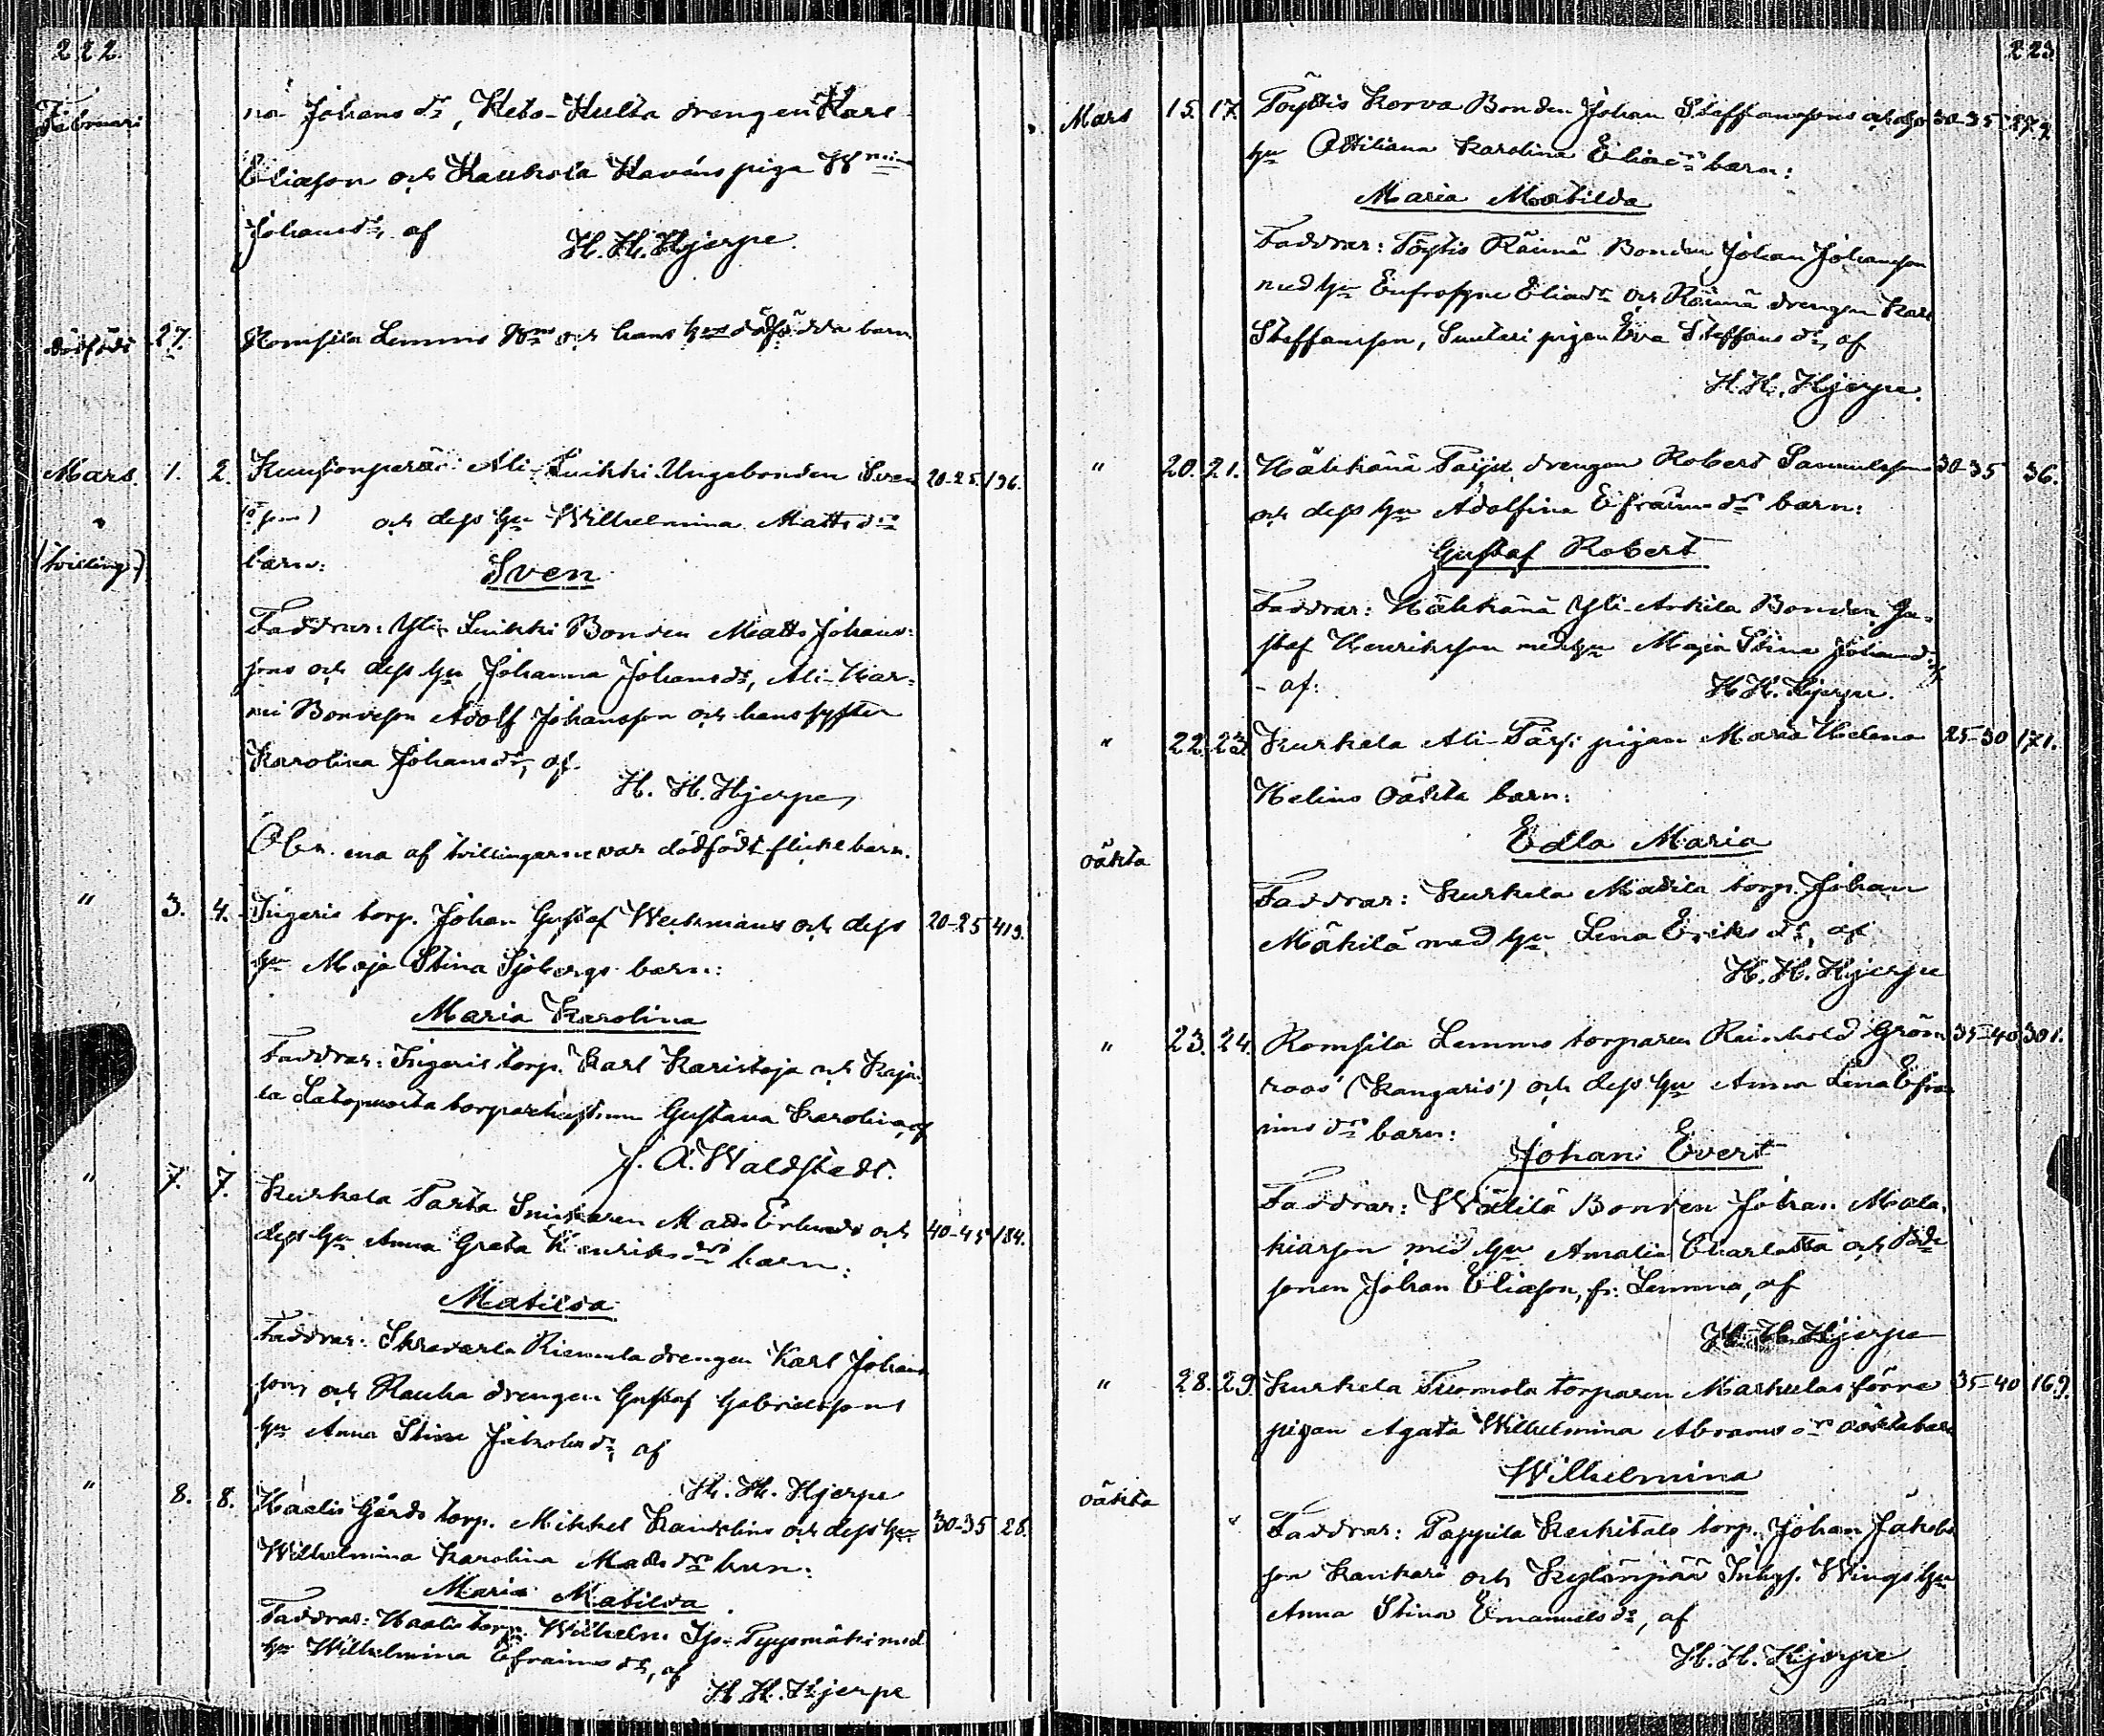 222.
Februari
na Johans dr, Keto-Kulta drengen Karl
Eliasson och Kaukola Kavéns piga Wmina
Johansdr, af H. H. Hjerpe.
dödfödt 27. Lemmo och hans hus dödfödda barn
Mars 1. 2. Kuusionperä Ali-Luikki Ungebonden Sven 20-25. 196.
och dess hu Wilhelmina Matts dr
(tvilling) barn: Sven
Faddrar: Yli-Luikki Bonden Matts Johans-
sons och dess hu Johanna Johansdr, Ali-Kar-
mi Bondeson Adolf Johansson och hans syster
Karolina Johansdr, af
H. H. Hjerpe
Obs. ena af tvillingarne var dödfödt flickebarn.
" 3. 4. torp. Johan Gustaf Weckmans och dess 20-25 419.
hu Maja Stina Sjöbergs barn:
Maria Karolina
Faddrar: torp. Karl Karistoja och Kaja-
la Latopuosta torparehustrun Gustava Karolina, af
J. A. Waldstedt.
" 7. 7. Kurkela Parta Snickaren Matts Erlunds och 40-45 184.
dess hu Anna Greta Henriks dr barn:
Matilda
Faddrar: drengen Karl Johans
sons och Rauha drengen Gustaf Gabrielssons
hu Anna Stina Jakobs dr, af
H. H. Hjerpe
" 8. 8. Haalis Gärds torp. Mikkel Kandelins och dess hu 30-35 28.
Wilhelmina Karolina Matts dr barn:
Maria Matilda
Faddrar: Haalis torp. Wilhelm Iso-Pyysmäki med
hu Wilhelmina Efraims dr, af
H. H. Hjerpe
223
Mars 15. 17. Töystis Korva Bonden Johan Steffanssons och dess 30-35
hu Ottiliana Karolina Elias dr barn:
Maria Matilda
Faddrar: Töystis Räimä Bonden Johan Johansson
med hu Eufrosyne Eliasdr och Räimä drengen Karl
Steffansson, Suutari pigan Eva Steffans dr, af
H. H. Hjerpe.
" 20. 21. Hähkänä Taiju drengen Robert Samuelssons 30-35 36.
och dess hu Adolfina Efraims dr barn:
Gustaf Robert
Faddrar: Hähkänä Yli-Arkila Bonden Gu-
staf Henriksson med hu Maja Stina Johansdr
- af: H. H. Hjerpe.
" 22. 23. Kurkela Ali-Pärsi pigan Maria Helena 25-30 171.
Helins Oäkta barn:
Edla Maria
oäkta
Faddrar: Kurkela Mattila torp. Johan
Mäkilä med hu Lena Eriks dr, af
H. H. Hjerpe
" 23. 24. Lemmo torparen Reinhold Grön- 35-40 301.
roos (Kangaris) och dess hu Anna Lena Efra-
ims dr barn:
Johan Evert
Faddrar: Wälilä Bonden Johan Mala-
kiasson med hu Amalia Charlotta och
sonen Johan Eliasson, fr. Lemmo, af
H. H. Hjerpe
" 28. 29. Kurkela Tuomola torparen Markulas förre 35-40 169.
pigan Agata Wilhelmina Abrams dr oäkta barn
Wilhelmina
oäkta
Faddrar: Pappila Keskitalo torp. Johan Jakobs
son Kankare och Kylänpää Inhys. Wings hu
Anna Stina Emanuels dr, af
H. H. Hjerpe